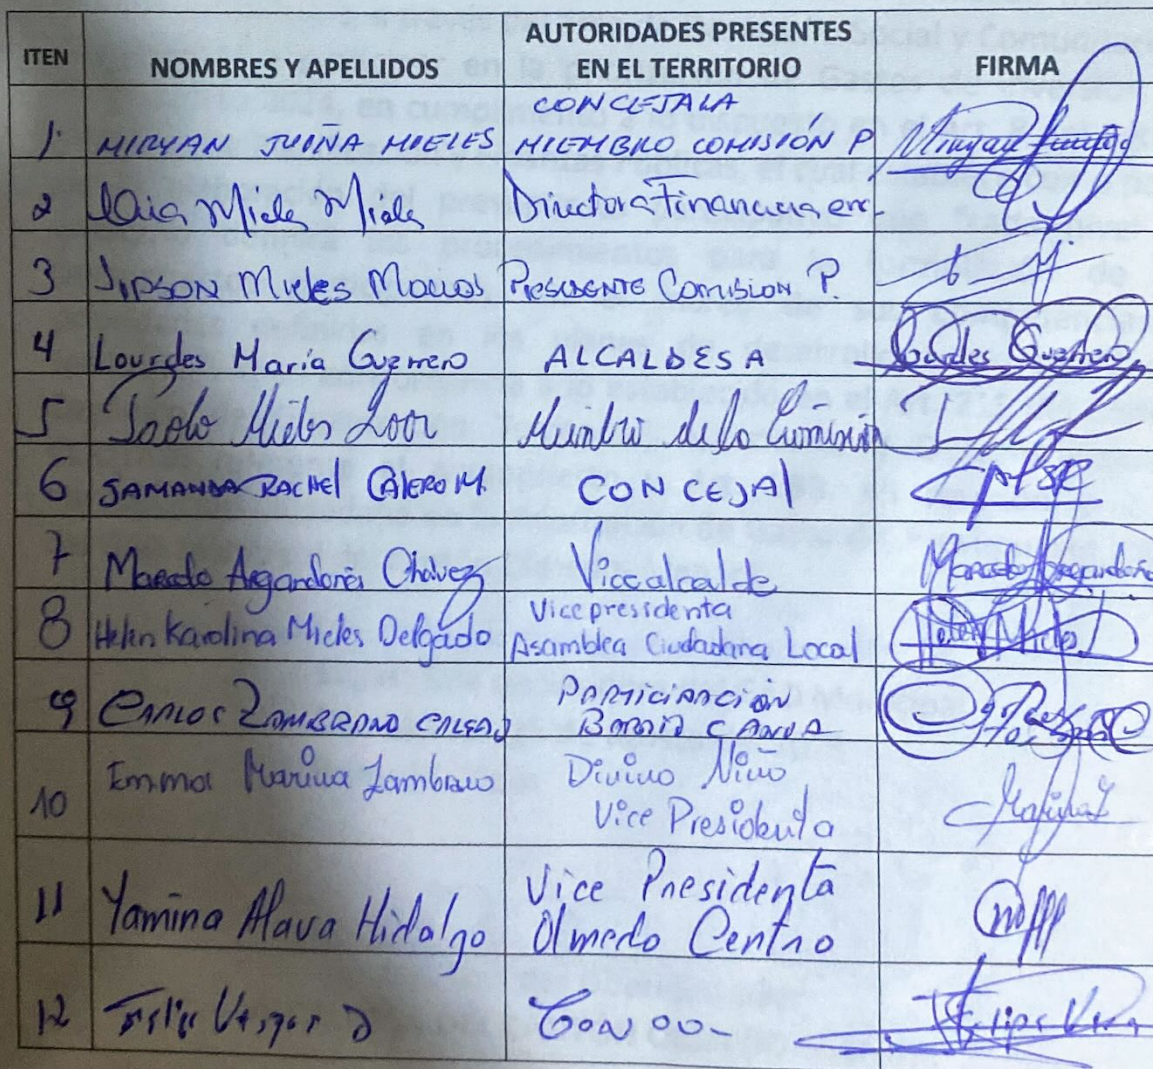 ITEN
NOMBRES Y APELLIDOS
AUTORIDADES PRESENTES
EN EL TERRITORIO
FIRMA
1. MIRYAN JUIÑA MIELES
CONCEJALA
MIEMBRO COMISIÓN P
2 Miele Miele Directora Financiera
3 JIPSON Mieles Macias PRESIDENTE COMISION P.
4 Lourdes María Guerrero ALCALDESA Lourdes Guerrero
5 Paolo Mieles Loor Miembro de la Comisión
6 SAMANDA RACHEL CALERO M. CONCEJAL
7 Marcelo Argandoña Chávez Vicealcalde Marcelo Argandoña
8 Helen Karolina Mieles Delgado
Vicepresidenta
Asamblea Ciudadana Local
Helen Mieles
9 CARLOS ZAMBRANO
PARTICIPACIÓN
10 Emma Marina Zambrano
Divino Niño
Vice Presidenta
Marina Z
11 Yamina Alava Hidalgo
Vice Presidenta
Olmedo Centro
12 Felipe
Felipe